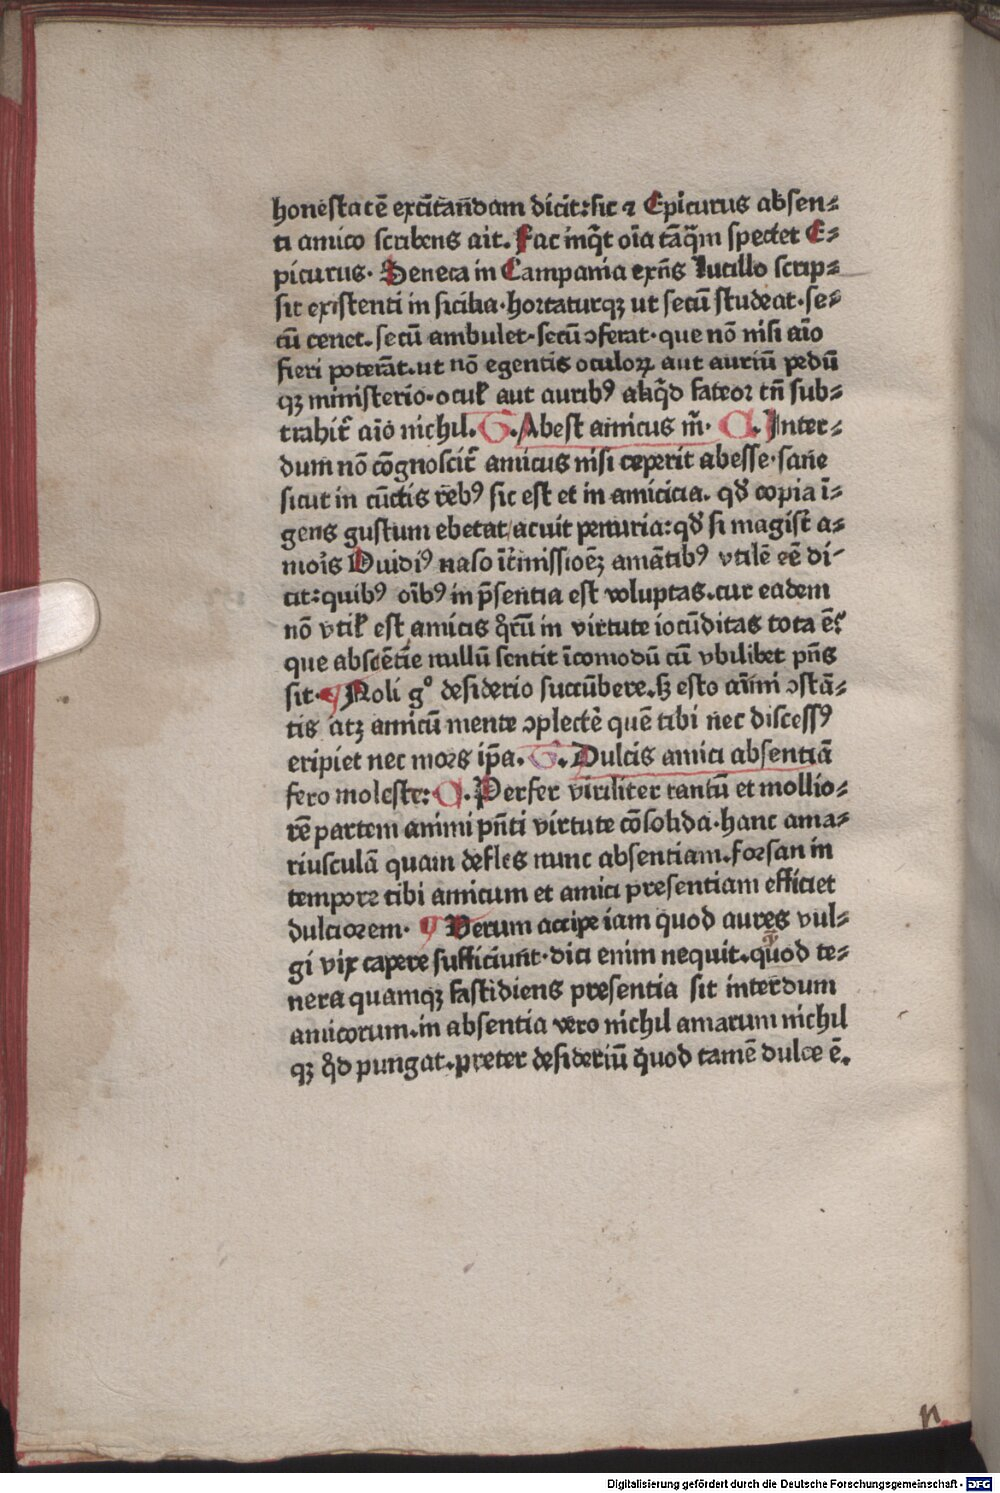 honestatē excitandam dicit: sic ⁊ Epicurus absen⸗
ti amico scribens ait. Fac inq̄t oīa tāq̄m spectet E⸗
picurus. Seneca in Campania exn̄s lucillo scrip⸗
sit existenti in sicilia. hortaturqꝫ ut secū studeat. se⸗
cū cenet. secū ambulet. secū ↄferat. que nō nisi aīo
fieri poterāt. ut nō egentis oculoꝝ aut auriū pedū
qꝫ ministerio. ocul̄ aut auribꝰ aliq̄d fateor tn̄ sub⸗
trahit̄ aīo nichil. G. Abest amicus m̄. C. Inter⸗
dum nō cōgnoscit̄ amicus nisi ceperit abesse. sane
sicut in cūctis rebꝰ sic est et in amicicia. qd̄ copia ī⸗
gens gustum ebetat/acuit penuria: qd̄ si magist̄ a⸗
moīs Ouidiꝰ naso īt̄missioēꝫ amātibꝰ vtilē eē di⸗
cit: quibꝰ oībꝰ in p̄sentia est voluptas. cur eadem
nō vtil̄ est amicis q̄rū in virtute iocūditas tota ē?
que absētie nullū sentit īcomodū cū vbilibet pn̄s
sit. ¶ Noli gᵒ desiderio succūbere. sꝫ esto aīmi ↄstā⸗
tis atꝫ amicū mente ↄplectē quē tibi nec discessꝰ
eripiet nec mors ip̄a. G. Dulcis amici absentiā
fero moleste: C. Perfer viriliter tantū et mollio⸗
rē partem animi pn̄ti virtute cōsolida. hanc ama⸗
riusculā quam defles nunc absentiam. forsan in
tempore tibi amicum et amici presentiam efficiet
dulciorem. ¶ Verum accipe iam quod aures vul⸗
gi vix capere sufficiunt. dici enim nequit. quod te⸗
nera quamqꝫ fastidiens presentia sit interdum
amicorum. in absentia vero nichil amarum nichil
qꝫ q̄d pungat. preter desideriū quod tamē dulce ē.
n
Digitalisierung gefördert durch die Deutsche Forschungsgemeinschaft - DFG